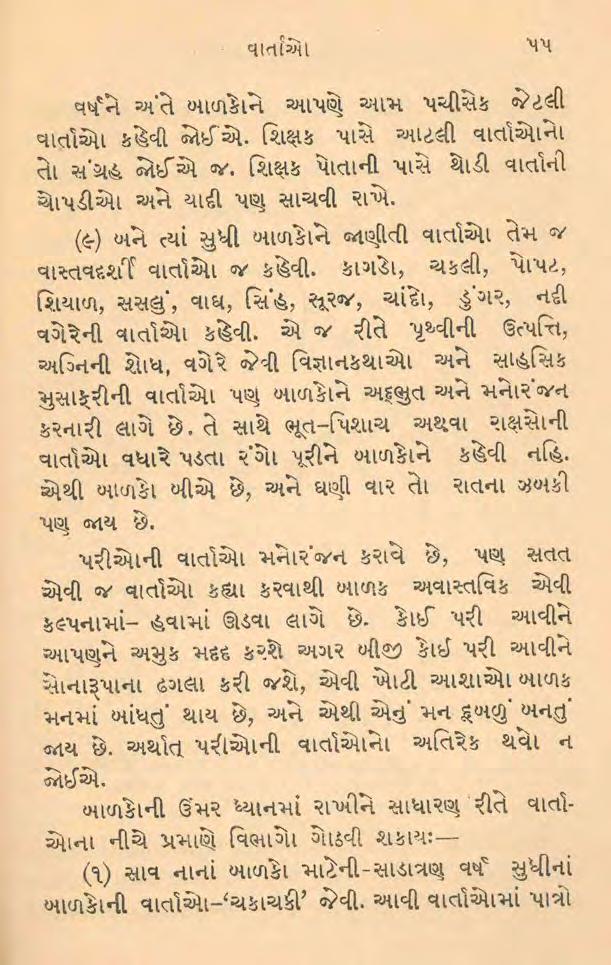 વાર્તાઓ ૫૫
વર્ષને અંતે બાળકોને આપણે આમ પચીસેક જેટલી
વાર્તાઓ કહેવી જોઈએ. શિક્ષક પાસે આટલી વાર્તાઓનો
તો સંગ્રહ જોઈએ જ. શિક્ષક પોતાની પાસે થોડી વાર્તાની
ચોપડીઓ અને યાદી પણ સાચવી રાખે.
(૯) બને ત્યાં સુધી બાળકોને જાણીતી વાર્તાઓ તેમ જ
વાસ્તવદર્શી વાર્તાઓ જ કહેવી. કાગડો, ચકલી, પોપટ,
શિયાળ, સસલું, વાઘ, સિંહ, સૂરજ, ચાંદો, ડુંગર, નદી
વગેરેની વાર્તાઓ કહેવી. એ જ રીતે પૃથ્વીની ઉત્પત્તિ,
અગ્નિની શોધ, વગેરે જેવી વિજ્ઞાનકથાઓ અને સાહસિક
મુસાફરીની વાર્તાઓ પણ બાળકોને અદ્દભુત અને મનોરંજન
કરનારી લાગે છે. તે સાથે ભૂત-પિશાચ અથવા રાક્ષસોની
વાર્તાઓ વધારે પડતા રંગો પૂરીને બાળકોને કહેવી નહિ.
એથી બાળકો બીએ છે, અને ઘણી વાર તો રાતના ઝબકી
પણ જાય છે.
પરીઓની વાર્તાઓ મનોરંજન કરાવે છે, પણ સતત
એવી જ વાર્તાઓ કહ્યા કરવાથી બાળક અવાસ્તવિક એવી
કલ્પનામાં- હવામાં ઊડવા લાગે છે. કોઈ પરી આવીને
આપણને અમુક મદદ કરશે અગર બીજી કોઈ પરી આવીને
સોનારૂપાના ઢગલા કરી જશે, એવી ખોટી આશાઓ બાળક
મનમાં બાંધતું થાય છે, અને એથી એનું મન દૂબળું બનતું
જાય છે. અર્થાત્ પરીઓની વાર્તાઓનો અતિરેક થવો ન
જોઈએ.
બાળકોની ઉંમર ધ્યાનમાં રાખીને સાધારણ રીતે વાર્તા-
ઓના નીચે પ્રમાણે વિભાગો ગોઠવી શકાયઃ—
(૧) સાવ નાનાં બાળકો માટેની-સાડાત્રણ વર્ષ સુધીનાં
બાળકોની વાર્તાઓ-‘ચકાચકી’ જેવી. આવી વાર્તાઓમાં પાત્રો